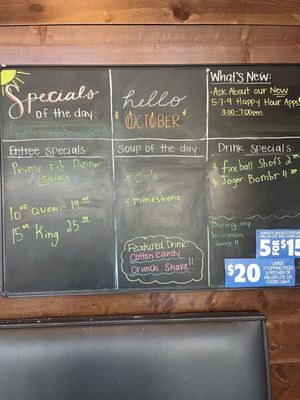 Specials
of the day:
hello
OCTOBER
What's New:
-Ask About our New
5-7-9 Happy Hour Apps!
3:00-7:00pm
Entree Specials:
Prime Rib Dinner
Specials
10oz Queen 19.99
15oz King 25.99
Soup of the day:
* Chili
* minestrone
Featured Drink
Cotton Candy
Crunch Shake!!
Drink Specials:
* Fireball Shots 2.00
* Jager Bombs 4.00
During any
Wisconsin
Game!!
5 FOR $15
$20
LARGE
2 TOPPING PIZZA
& PITCHER OF
MILLER LITE OR
COORS LIGHT